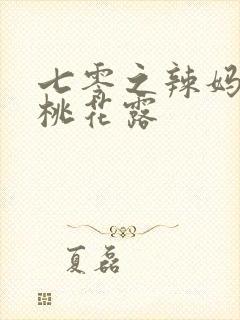 七零之辣妈
桃花露
夏磊